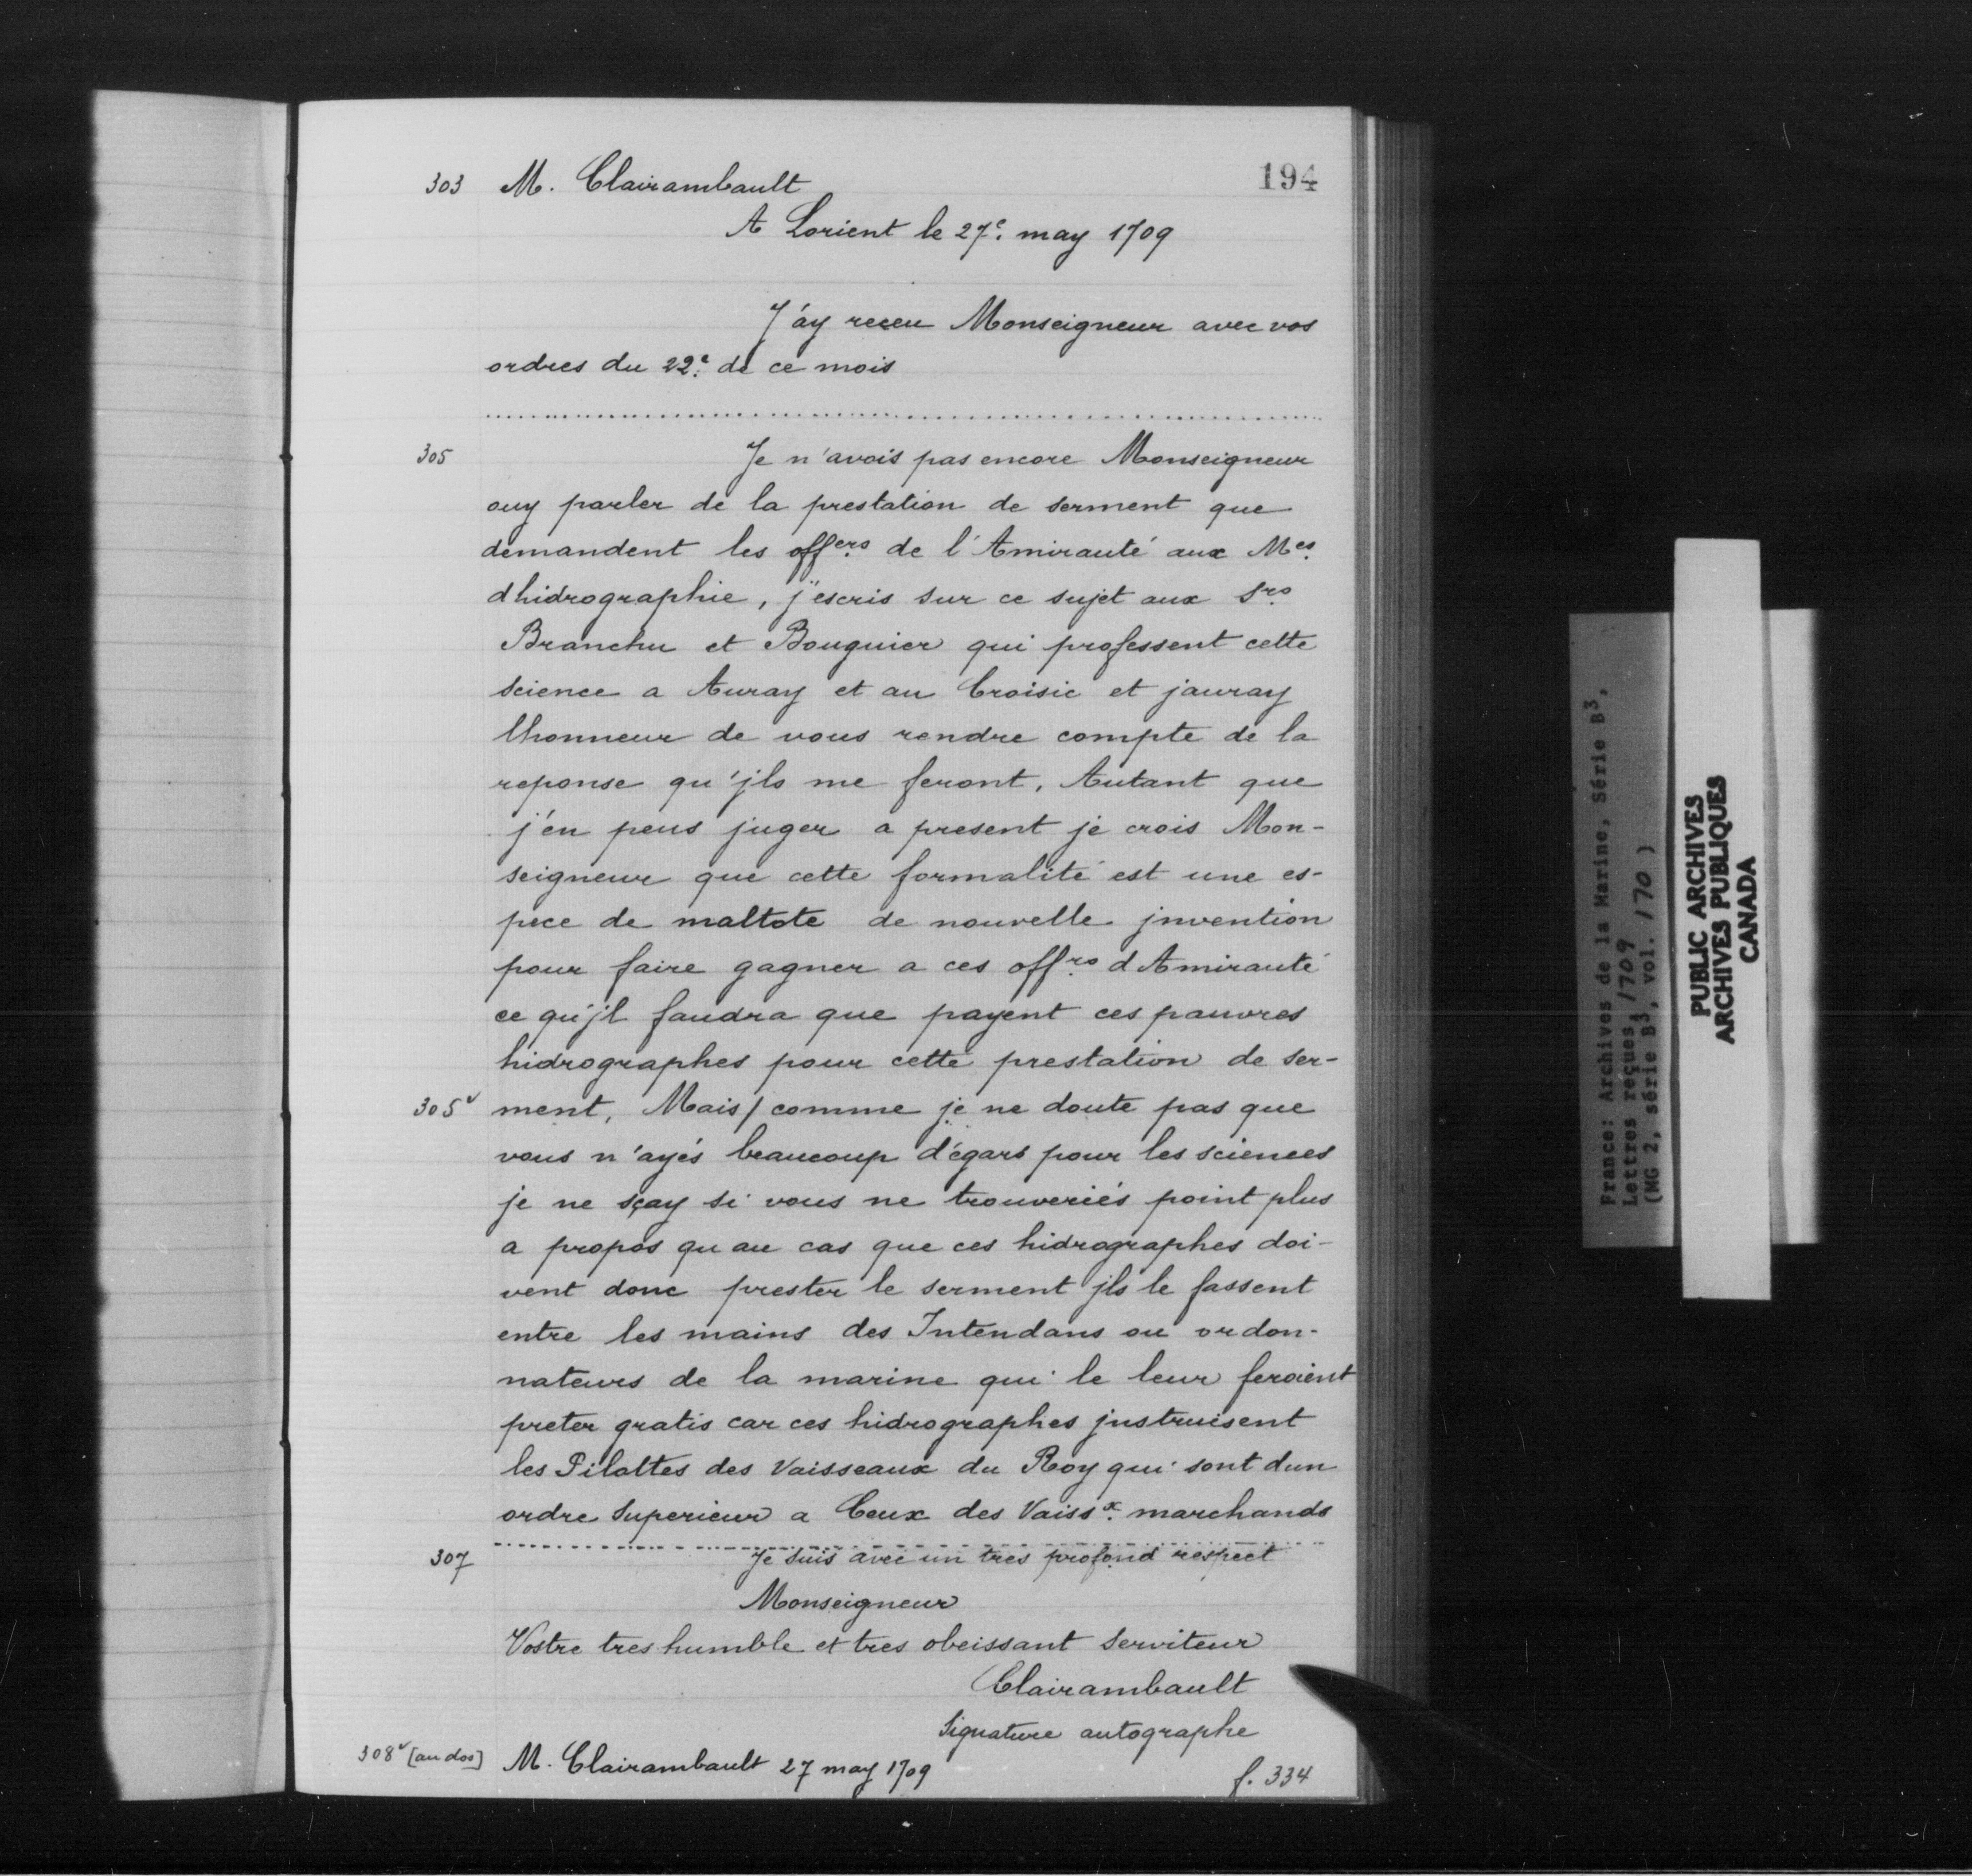 194
303 M. Clairambault
A Lorient le 27e. may 1709
J'ay receu Monseigneur avec vos
ordres du 22e. de ce mois
305 Je n'avois pas encore Monseigneur
ouy parler de la prestation de serment que
demandent les offers. de l'Amirauté aux Mes.
dhidrographie, j'escris sur ce sujet aux Srs.
Branchu et Bouguier qui professent cette
science a Auray et au Croisic et jauray
lhonneur de vous rendre compte de la
reponse qu'jls me feront, Autant que
j'en peus juger a present je crois Mon-
seigneur que cette formalité est une es-
pece de maltote de nouvelle jnvention
pour faire gagner a ces offrs. d Amirauté
ce qu'jl faudra que payent ces pauvres
hidrographes pour cette prestation de ser-
305v ment, Mais/comme je ne doute pas que
vous n'ayés beaucoup d'égars pour les sciences
je ne sçay si vous ne trouveriés point plus
a propos qu au cas que ces hidrographes doi-
vent donc prester le serment jls le fassent
entre les mains des Intendans ou ordon-
nateurs de la marine qui le leur feroient
preter gratis car ces hidrographes jnstruisent
les Pilottes des Vaisseaux du Roy qui sont dun
ordre Superieur a Ceux des Vaissx. marchands
307 Je suis avec un tres profond respect
Monseigneur
Vostre tres humble et tres obeissant Serviteur
Clairambault
Signature autographe
308v [au dos] M. Clairambault 27 may 1709
f. 334
France: Archives de la Marine, Série B3,
Lettres reçues, 1709
(MG 2, série B3, vol. 170 )
PUBLIC ARCHIVES
ARCHIVES PUBLIQUES
CANADA